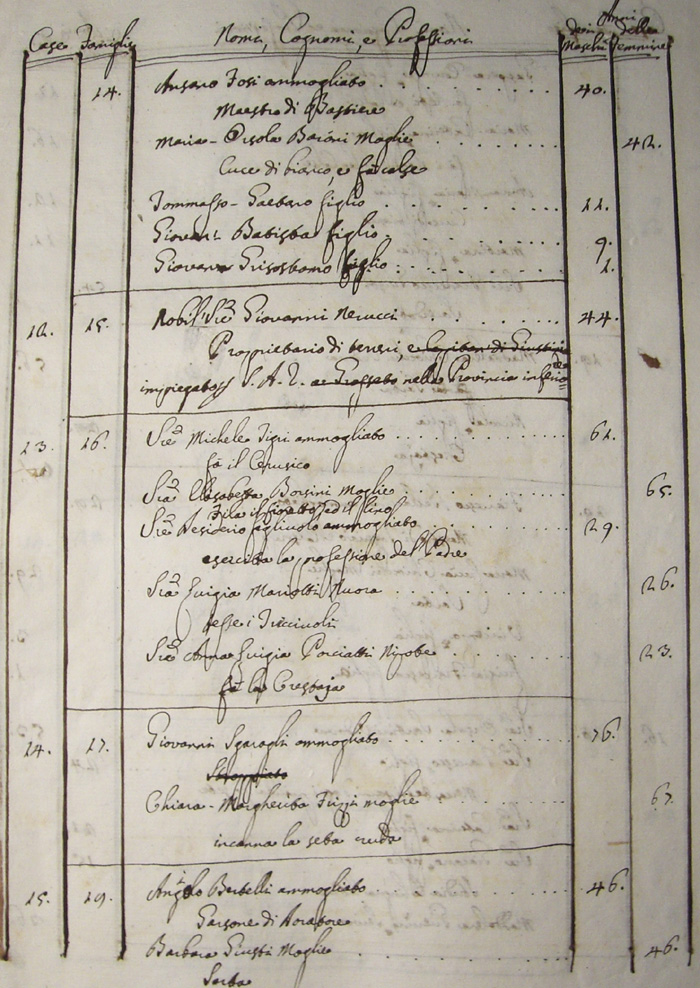 Case Famiglie Nomi, Cognomi, e Professioni Anni
dei Maschi delle Femmine
14. Ansano Tosi ammogliato 40.
Maestro di Bastiere
Maria Orsola Baroni Moglie 42.
Cuce di bianco, e fà calze
Tommasso Gaetano figlio 11.
Giovanni Batista figlio 9.
Giovanni Grisostomo figlio 1.
12. 15. Nobil Sig.e Giovanni Nerucci 44.
Proprietario di beneri, e Capitan di Giustizia
impiegato S. A. I. a Grosseto nella Provincia inferio
13. 16. Sig.e Michele Tigri ammogliato 61.
fà il Cerusico
Sig.a Elisabetta Borsini Moglie 65.
Fila il fioretto, ed il lino
Sig.e Desiderio figliuolo ammogliato 29.
esercita la professione del Padre
Sig.a Luigia Mariotti Nuora 26.
tesse i Triccivoli
Sig.a Anna Luigia Porciatti Nipote 23.
fà la Crestaja
14. 17. Giovanni Sgaragli ammogliato 76.
Chiara Margherita Tizzi moglie 67.
incanna la seta cruda
15. 19. Angelo Bertelli ammogliato 46.
Garzone di
Barbara Giusti Moglie 46.